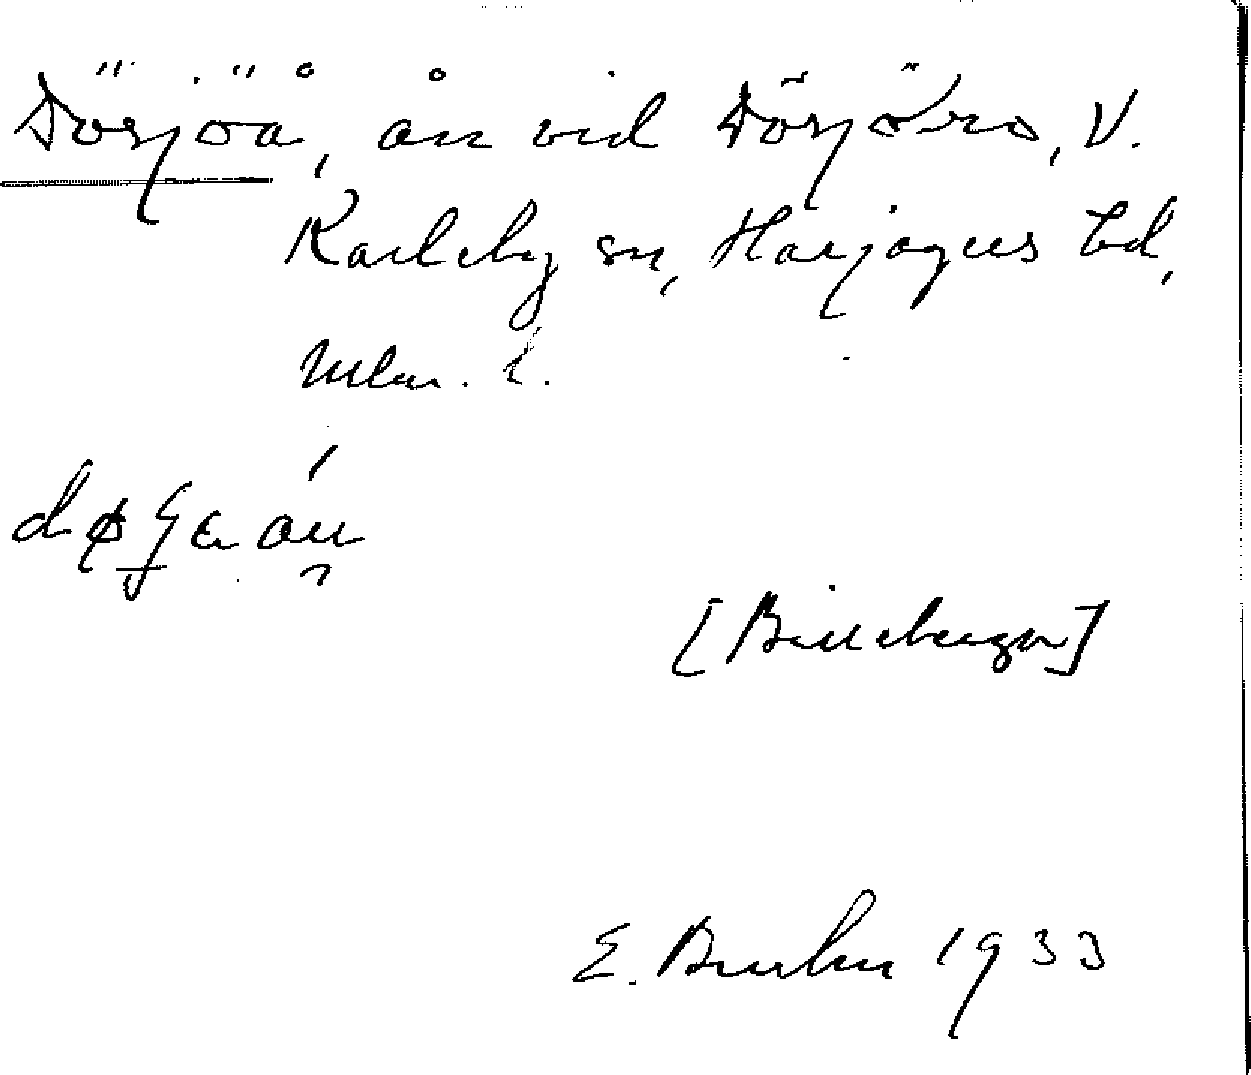 Dösjöå, ån vid Dösjöbro, V.
Karleby sn, Harjagers hd,
Mlm. l.
[Billeberga]
E. Bruhn 1933